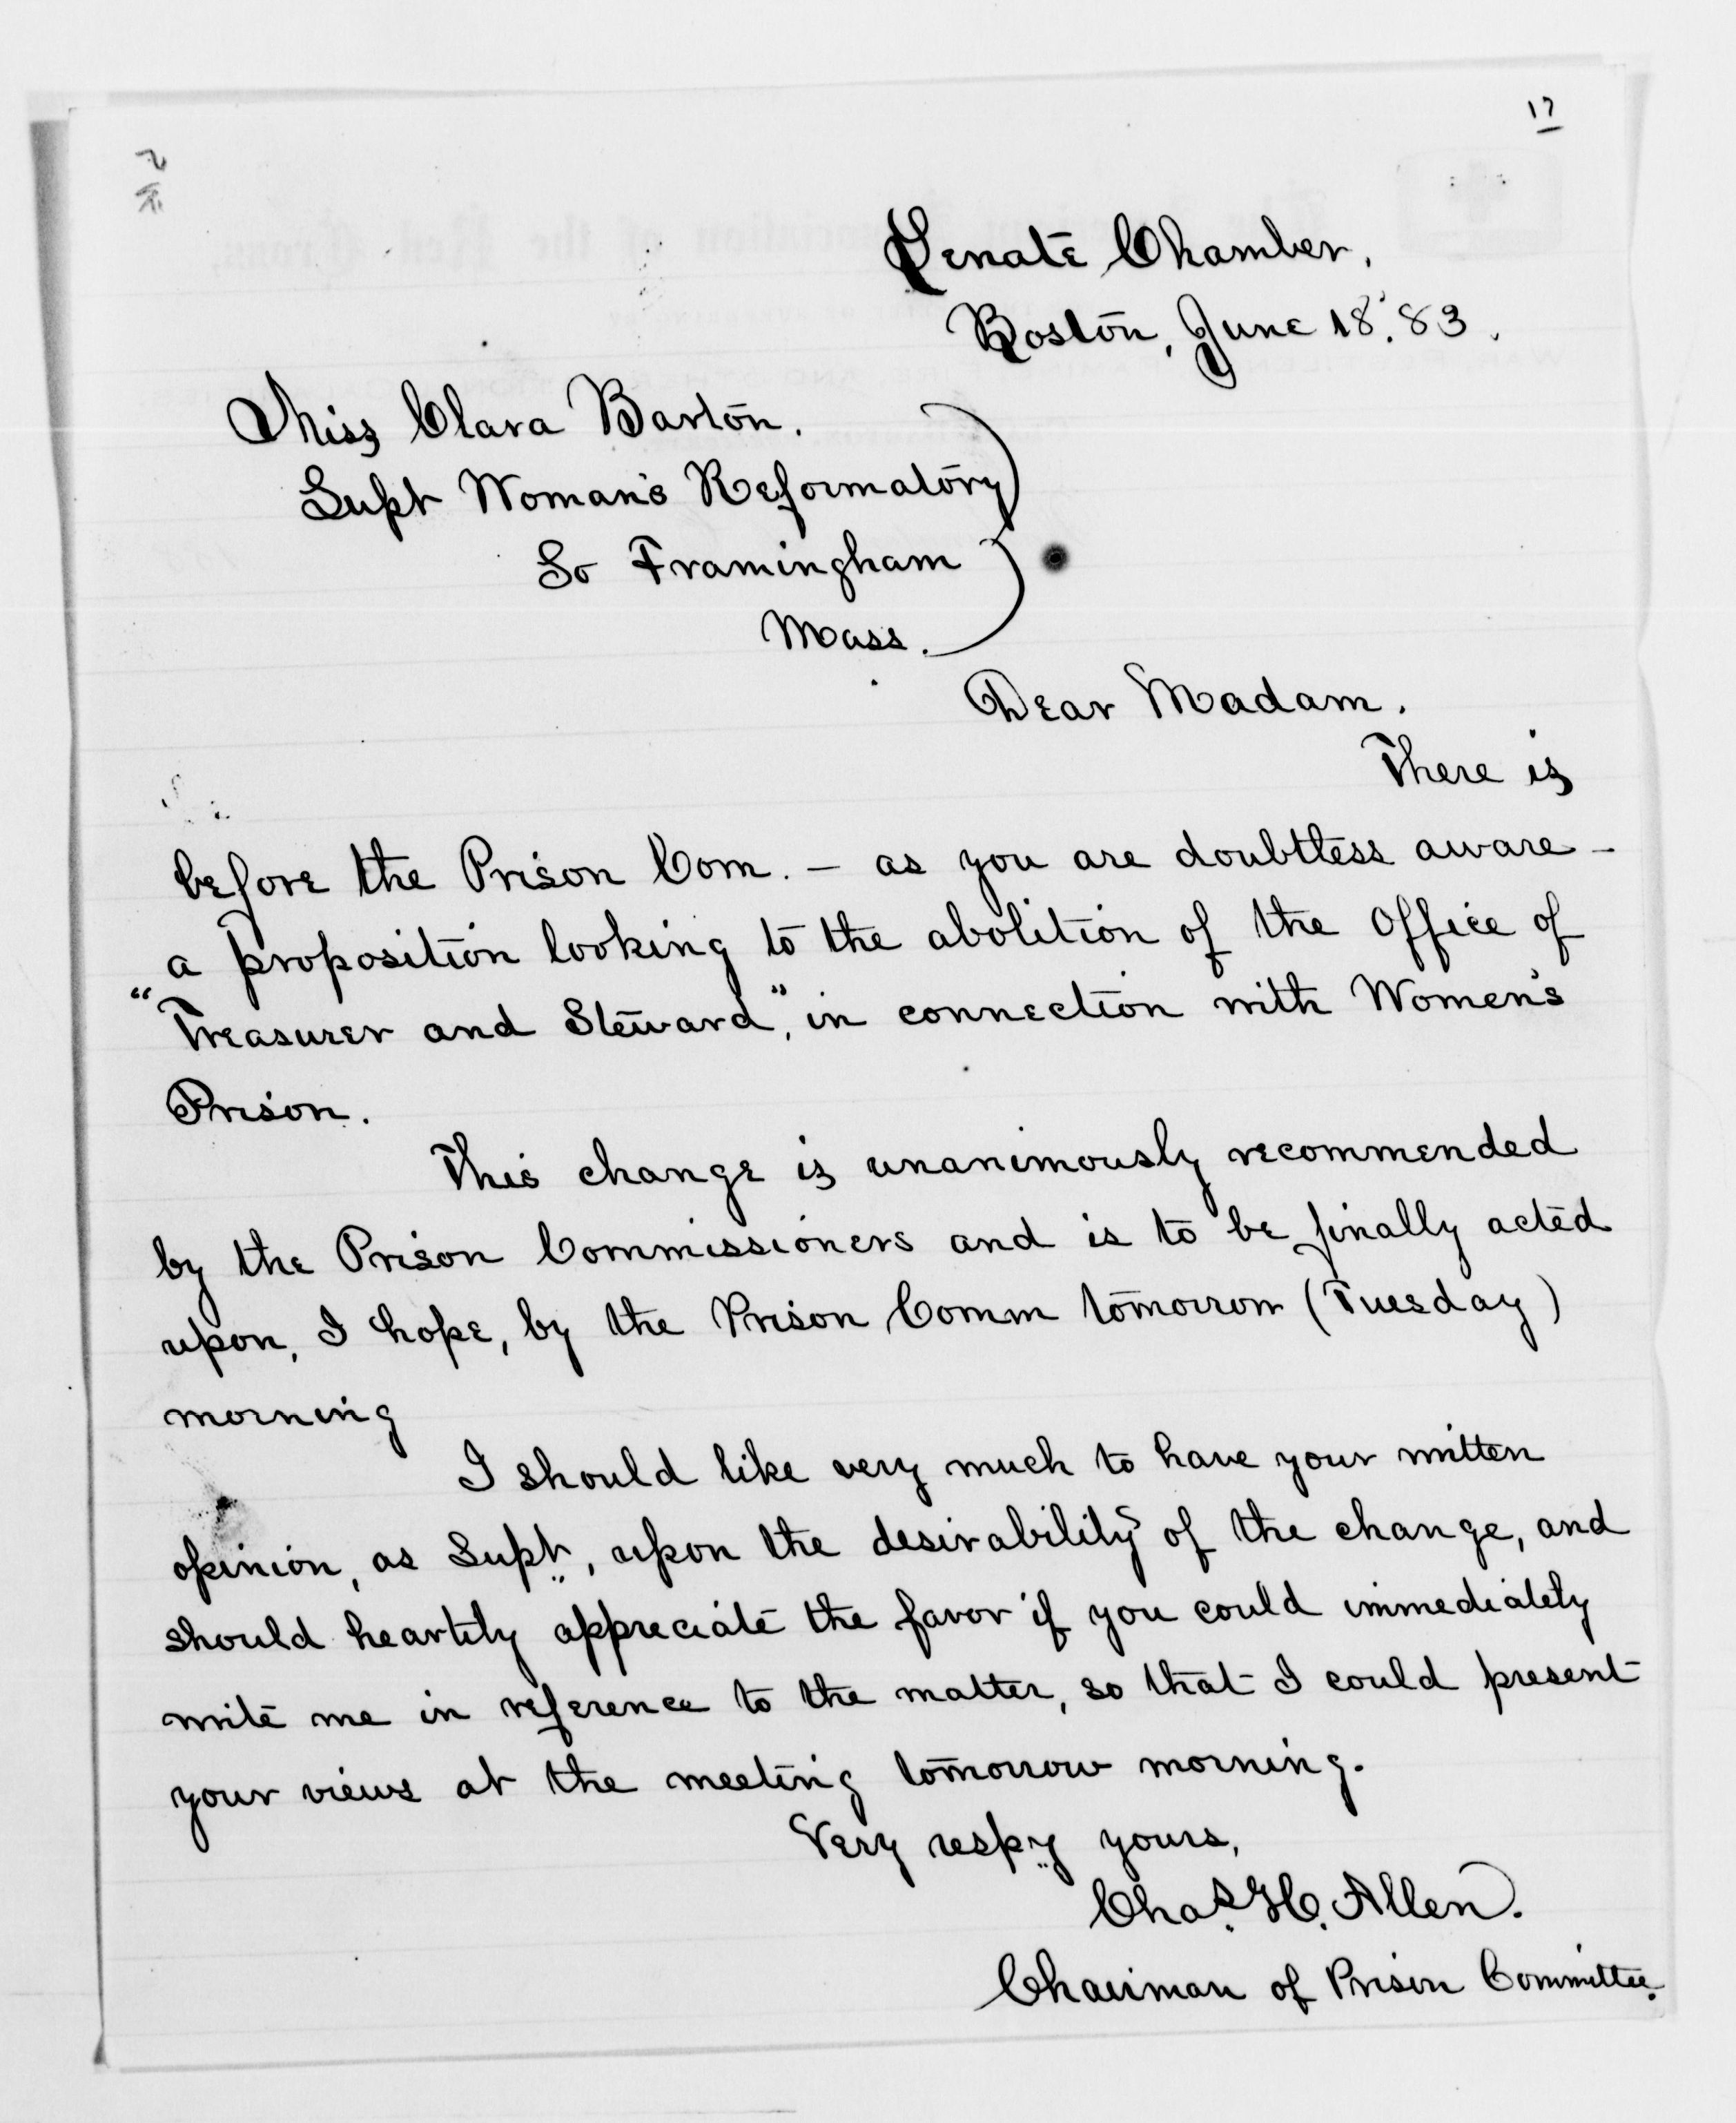 17
Senate Chamber,
Boston, June 18. 83.
Miss Clara Barton.
Supt Woman's Reformatory
So Framingham
Mass.
Dear Madam.
There is
before the Prison Com. – as you are doubtless aware –
a proposition looking to the abolition of the Office of
"Treasurer and Steward", in connection with Women's
Prison.
This change is unanimously recommended
by the Prison Commissioners and is to be finally acted
upon, I hope, by the Prison Comm tomorrow (Tuesday)
morning
I should like very much to have your written
opinion, as Supt, upon the desirability of the change, and
should heartily appreciate the favor if you could immediately
write me in reference to the matter, so that I could present
your views at the meeting tomorrow morning.
Very respy yours,
Chas. H. Allen.
Chairman of Prison Committee.